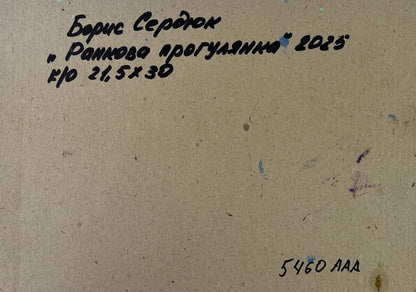 Борис Сердюк
„Ранкова прогулянка" 2025
к/о 21,5х30
5460 ААА